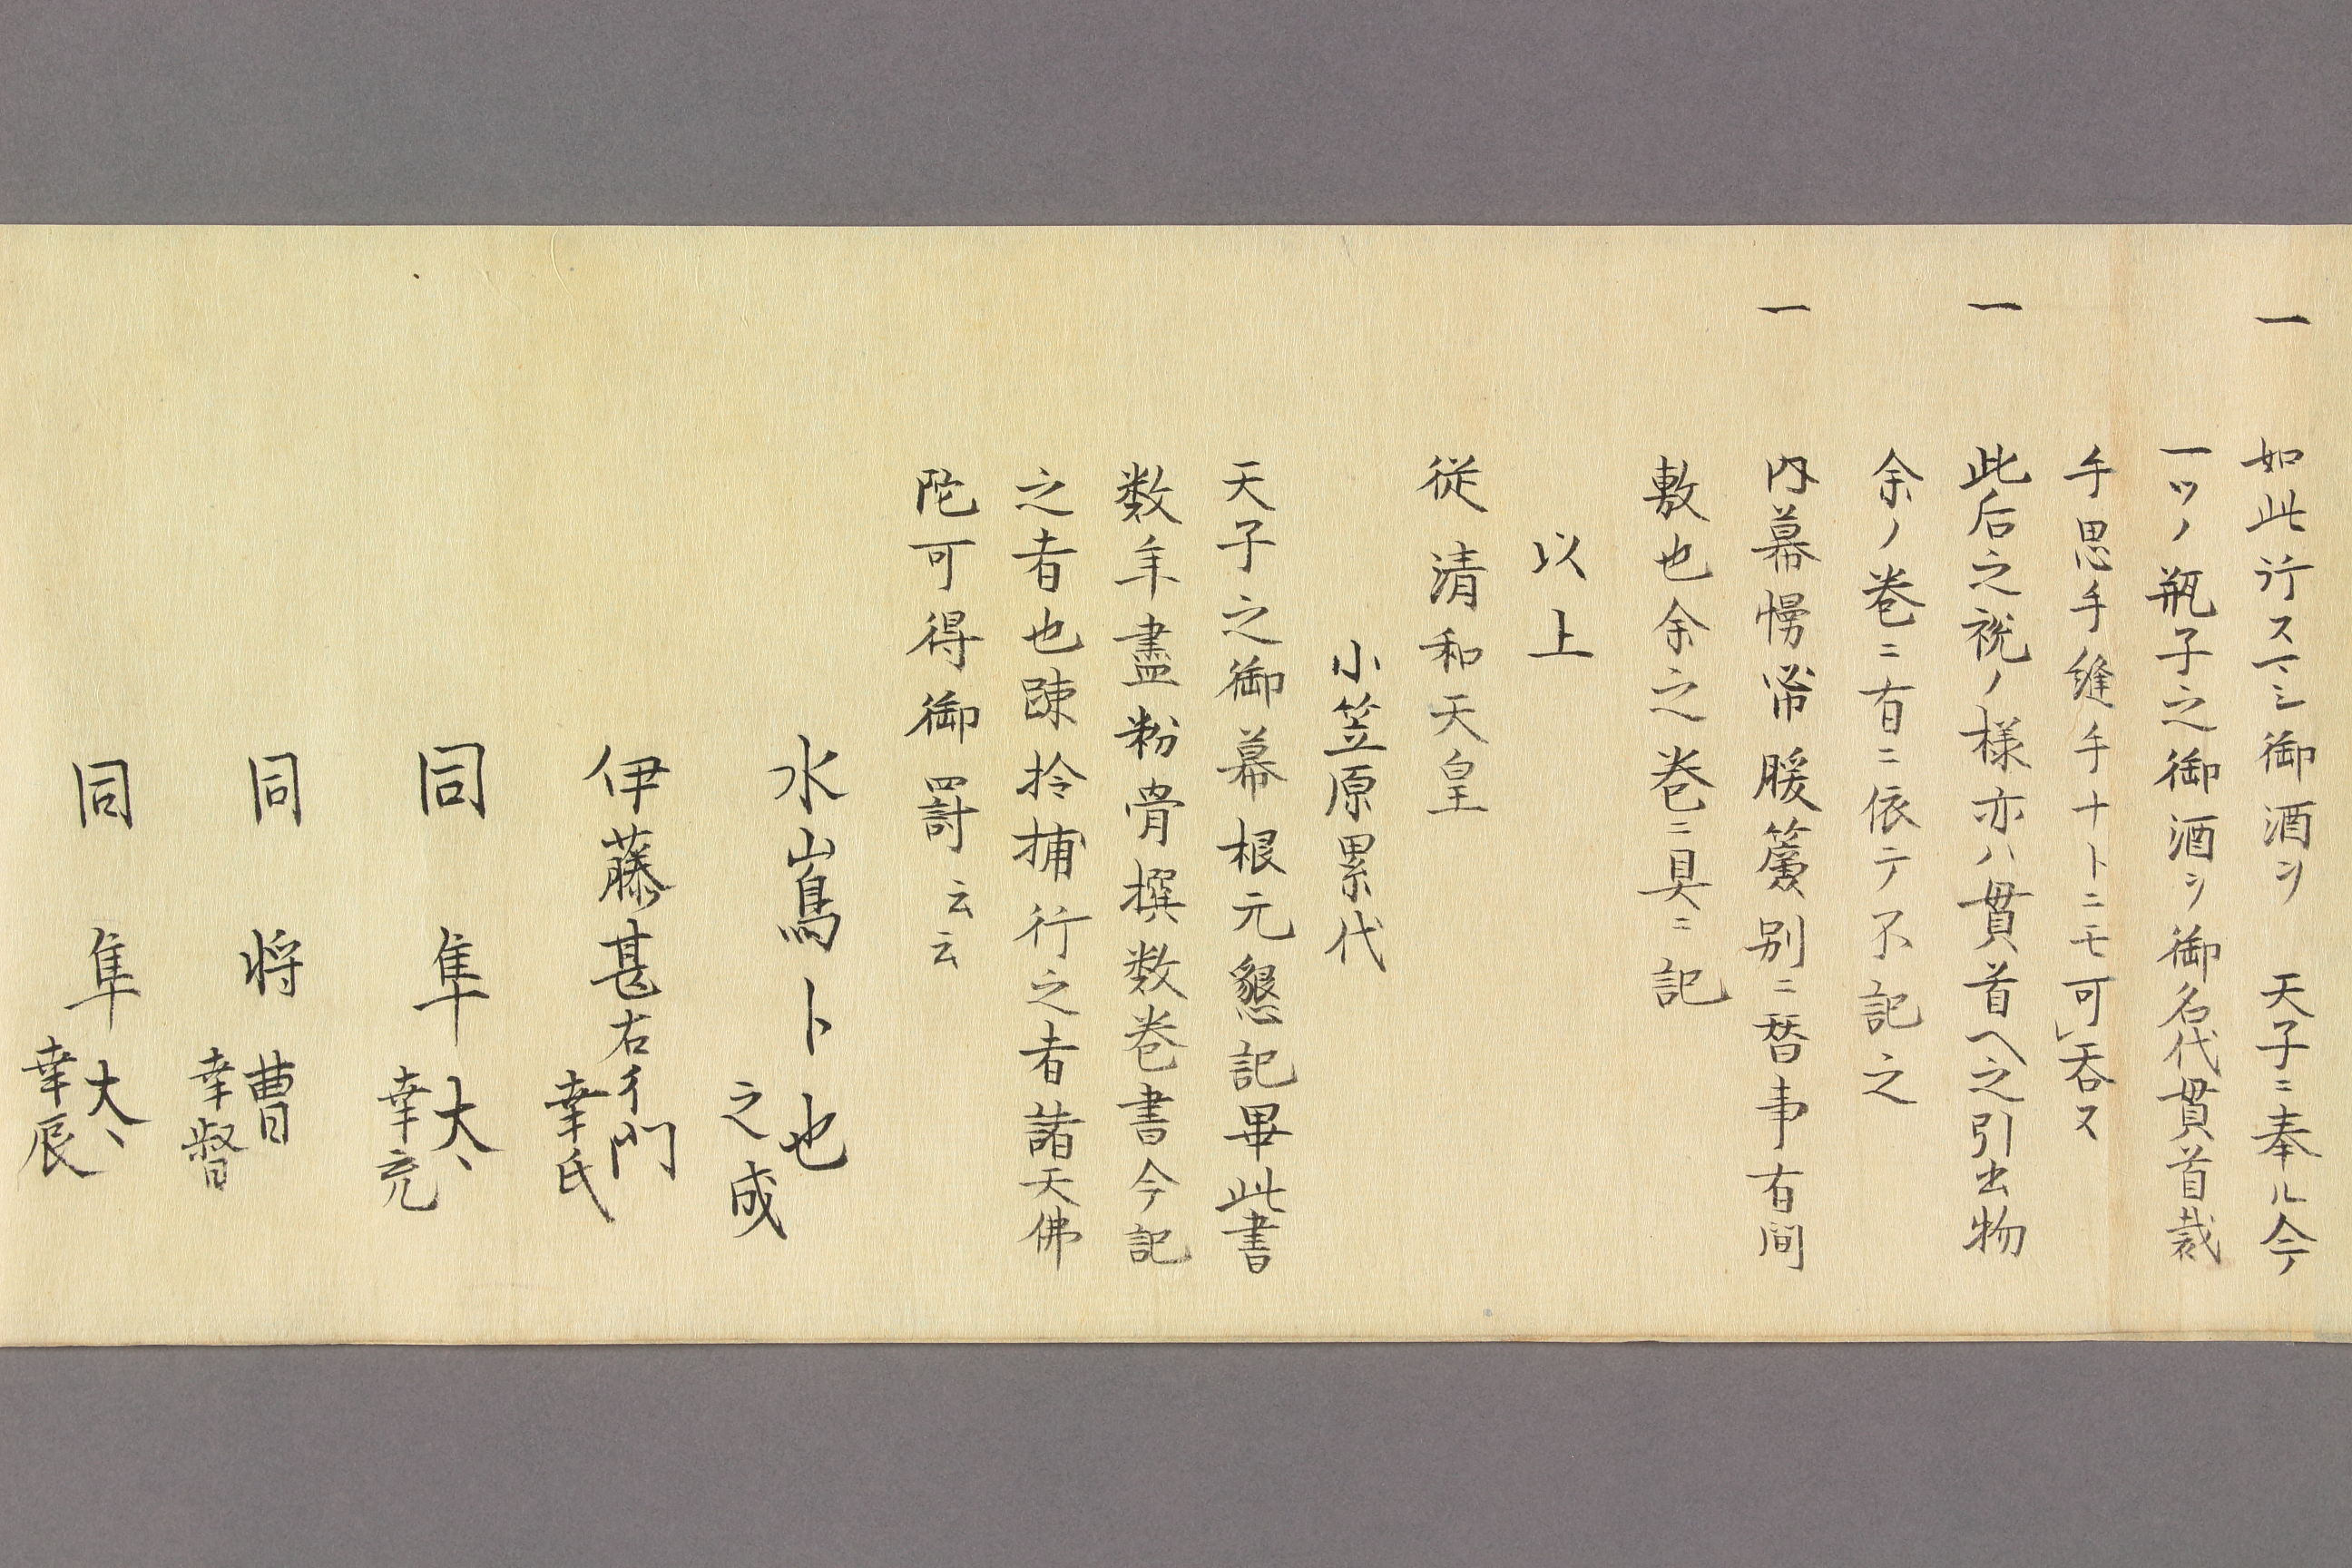 一 如此行スマシ御酒ヲ 天子ニ奉ル今
一ツノ瓶子之御酒ヲ御名代貫首裁
手思手縫手ナトニモ可呑又
一 此后之祝ノ様亦ハ貫首ヘ之引出物
余ノ巻ニ有ニ依テ不記之
一 内幕幔帟䁔簾別ニ暦事有間
敷也余之巻ニ具ニ記
以上
従 清和天皇
小笠原累代
天子之御幕根元懇記畢此書
数年盡粉骨撰数巻書今記
之者也疎拎捕行之者諸天佛
陀可得御罸云云
水嶌卜也
之成
伊藤甚右衛門
幸氏
同 隼太、
幸充
同 将曹
幸督
同 隼太、
幸辰